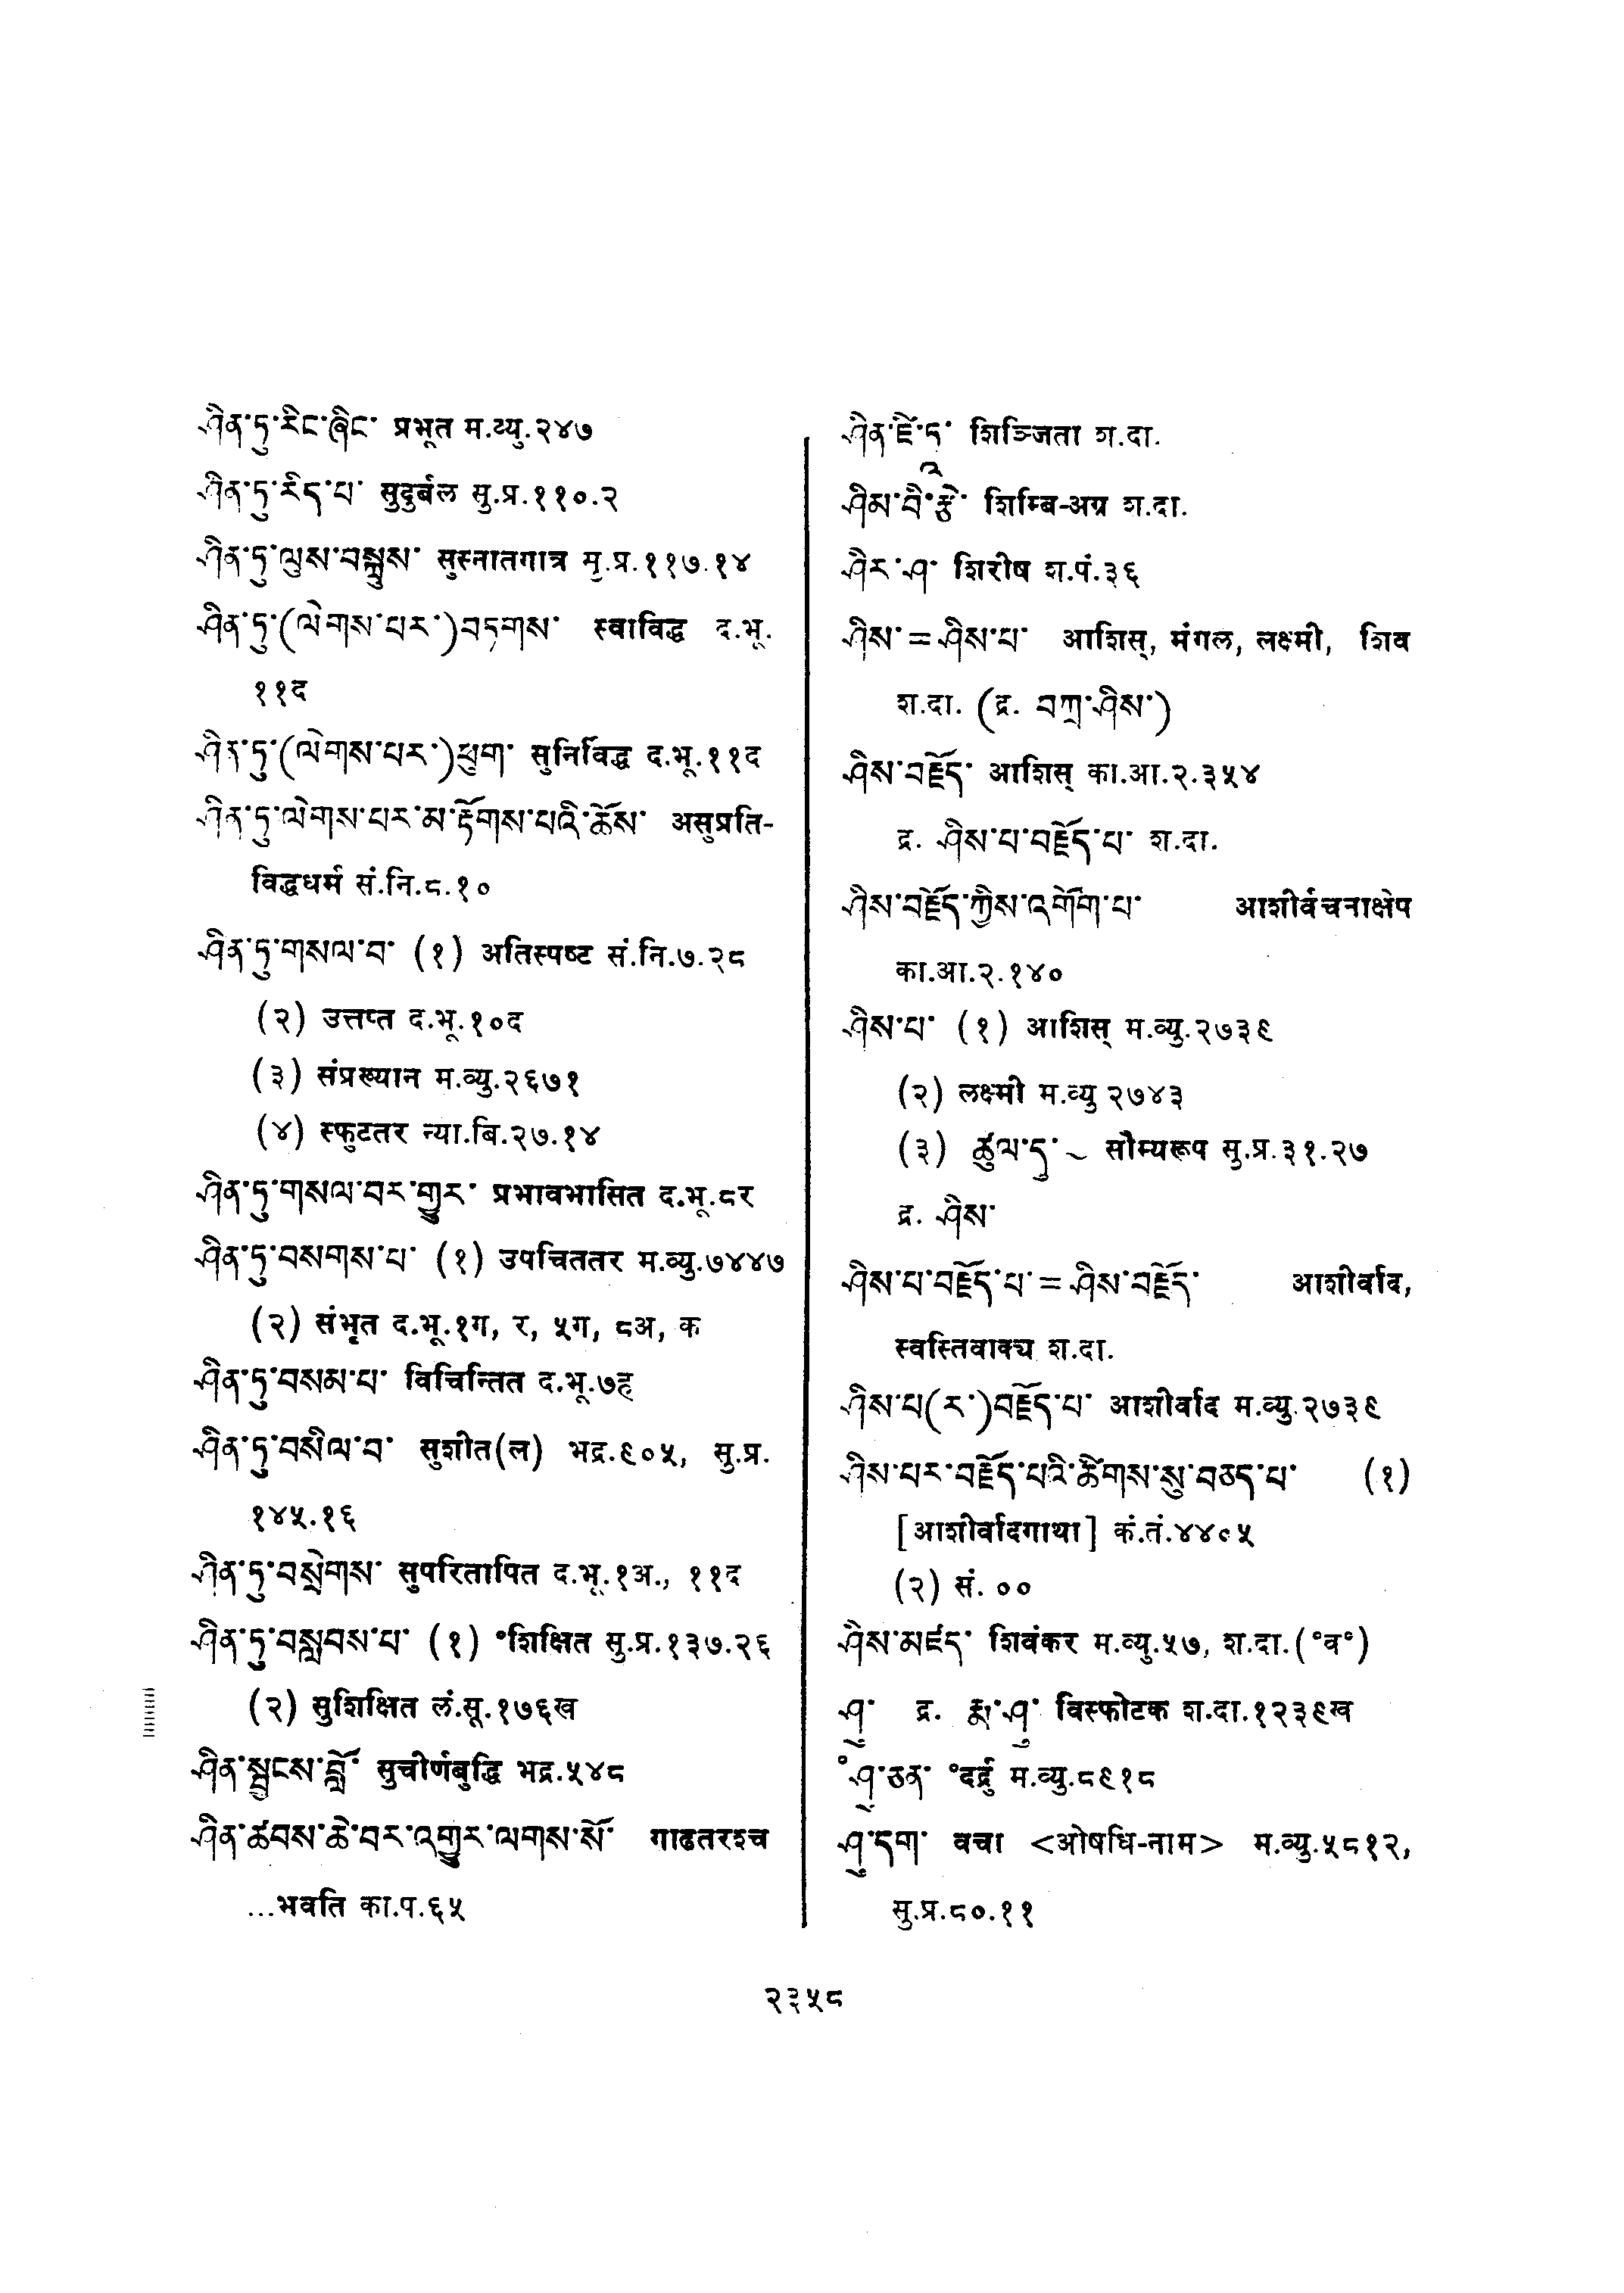 ཤིན་ཏུ་རིང་ཞིང་ प्रभूत म.व्यु.२४७
ཤིན་ཏུ་རིད་པ་ सुदुर्बल सु.प्र.११०.२
ཤིན་ཏུ་ལུས་བསྐྲུས་ सुस्नातगात्र मु.प्र.११७.१४
ཤིན་ཏུ་(ལེགས་པར་)བཏགས་ स्वाविद्ध द.भू.
११द
ཤིན་ཏུ་(ལེགས་པར་)ཕུག་ सुनिर्विद्ध द.भू.११द
ཤིན་ཏུ་ལེགས་པར་མ་རྟོགས་པའི་ཆོས་ असुप्रति-
विद्धधर्म सं.नि.८.१०
ཤིན་ཏུ་གསལ་བ་ (१) अतिस्पष्ट सं.नि.७.२८
(२) उत्तप्त द.भू.१०द
(३) संप्रख्यान म.व्यु.२६७१
(४) स्फुटतर न्या.बि.२७.१४
ཤིན་ཏུ་གསལ་བར་གྱུར་ प्रभावभासित द.भू.८र
ཤིན་ཏུ་བསགས་པ་ (१) उपचिततर म.व्यु.७४४७
(२) संभृत द.भू.१ग, र, ५ग, ८अ, क
ཤིན་ཏུ་བསམ་པ་ विचिन्तित द.भू.७ह
ཤིན་ཏུ་བསིལ་བ་ सुशीत(ल) भद्र.९०५, सु.प्र.
१४५.१६
ཤིན་ཏུ་བསྲེགས་ सुपरितापित द.भू.१अ., ११द
ཤིན་ཏུ་བསླབས་པ་ (१) °शिक्षित सु.प्र.१३७.२६
(२) सुशिक्षित लं.सू.१७६ख
ཤིན་སྦྱངས་བློ་ सुचीर्णबुद्धि भद्र.५४८
ཤིན་ཚབས་ཆེ་བར་འགྱུར་ལགས་སོ་ गाढतरश्च
...भवति का.प.६५
ཤིན་ཛི་ཏ་ शिञ्जिता श.दा.
ཤིམ་བི་རྩེ་ शिम्बि-अग्र श.दा.
ཤིར་ཤ་ शिरीष श.पं.३६
ཤིས་=ཤིས་པ་ आशिस्, मंगल, लक्ष्मी, शिव
श.दा. (द्र. བཀྲ་ཤིས་)
ཤིས་བརྗོད་ आशिस् का.आ.२.३५४
द्र. ཤིས་པ་བརྗོད་པ་ श.दा.
ཤིས་བརྗོད་ཀྱིས་འགོག་པ་ आशीर्वचनाक्षेप
का.आ.२.१४०
ཤིས་པ་ (१) आशिस् म.व्यु.२७३९
(२) लक्ष्मी म.व्यु २७४३
(३) ཚུལ་དུ་~ सौम्यरूप सु.प्र.३१.२७
द्र. ཤིས་
ཤིས་པ་བརྗོད་པ་=ཤིས་བརྗོད་ आशीर्वाद,
स्वस्तिवाक्य श.दा.
ཤིས་པ(ར་)བརྗོད་པ་ आशीर्वाद म.व्यु.२७३९
ཤིས་པར་བརྗོད་པའི་ཚིགས་སུ་བཅད་པ་ (१)
[आशीर्वादगाथा] कं.तं.४४०५
(२) सं. ००
ཤིས་མཛད་ शिवंकर म.व्यु.५७, श.दा.(°व°)
ཤུ་ द्र. རྨ་ཤུ་ विस्फोटक श.दा.१२३९ख
°ཤུ་ཅན་ °दर्द्रु म.व्यु.८९१८
ཤུ་དག་ वचा <ओषधि-नाम> म.व्यु.५८१२,
सु.प्र.८०.११
२३५८